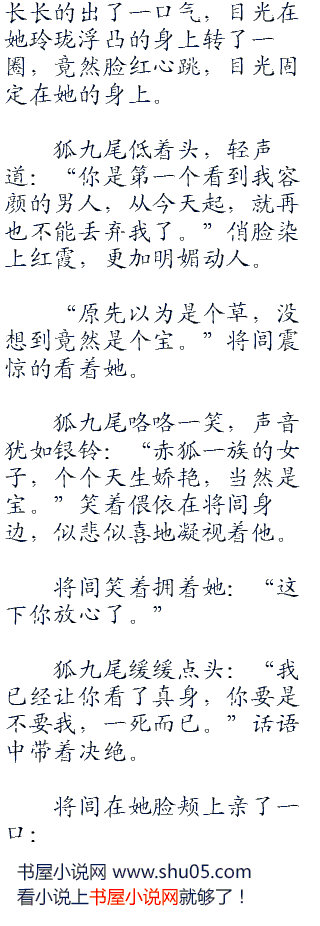 长长的出了一口气，目光在
她玲珑浮凸的身上转了一
圈，竟然脸红心跳，目光固
定在她的身上。
狐九尾低着头，轻声
道：“你是第一个看到我容
颜的男人，从今天起，就再
也不能丢弃我了。”俏脸染
上红霞，更加明媚动人。
“原先以为是个草，没
想到竟然是个宝。”将闾震
惊的看着她。
狐九尾咯咯一笑，声音
犹如银铃：“赤狐一族的女
子，个个天生娇艳，当然是
宝。”笑着偎依在将闾身
边，似悲似喜地凝视着他。
将闾笑着拥着她：“这
下你放心了。”
狐九尾缓缓点头：“我
已经让你看了真身，你要是
不要我，一死而已。”话语
中带着决绝。
将闾在她脸颊上亲了一
口：
书屋小说网 www.shu05.com
看小说上书屋小说网就够了！